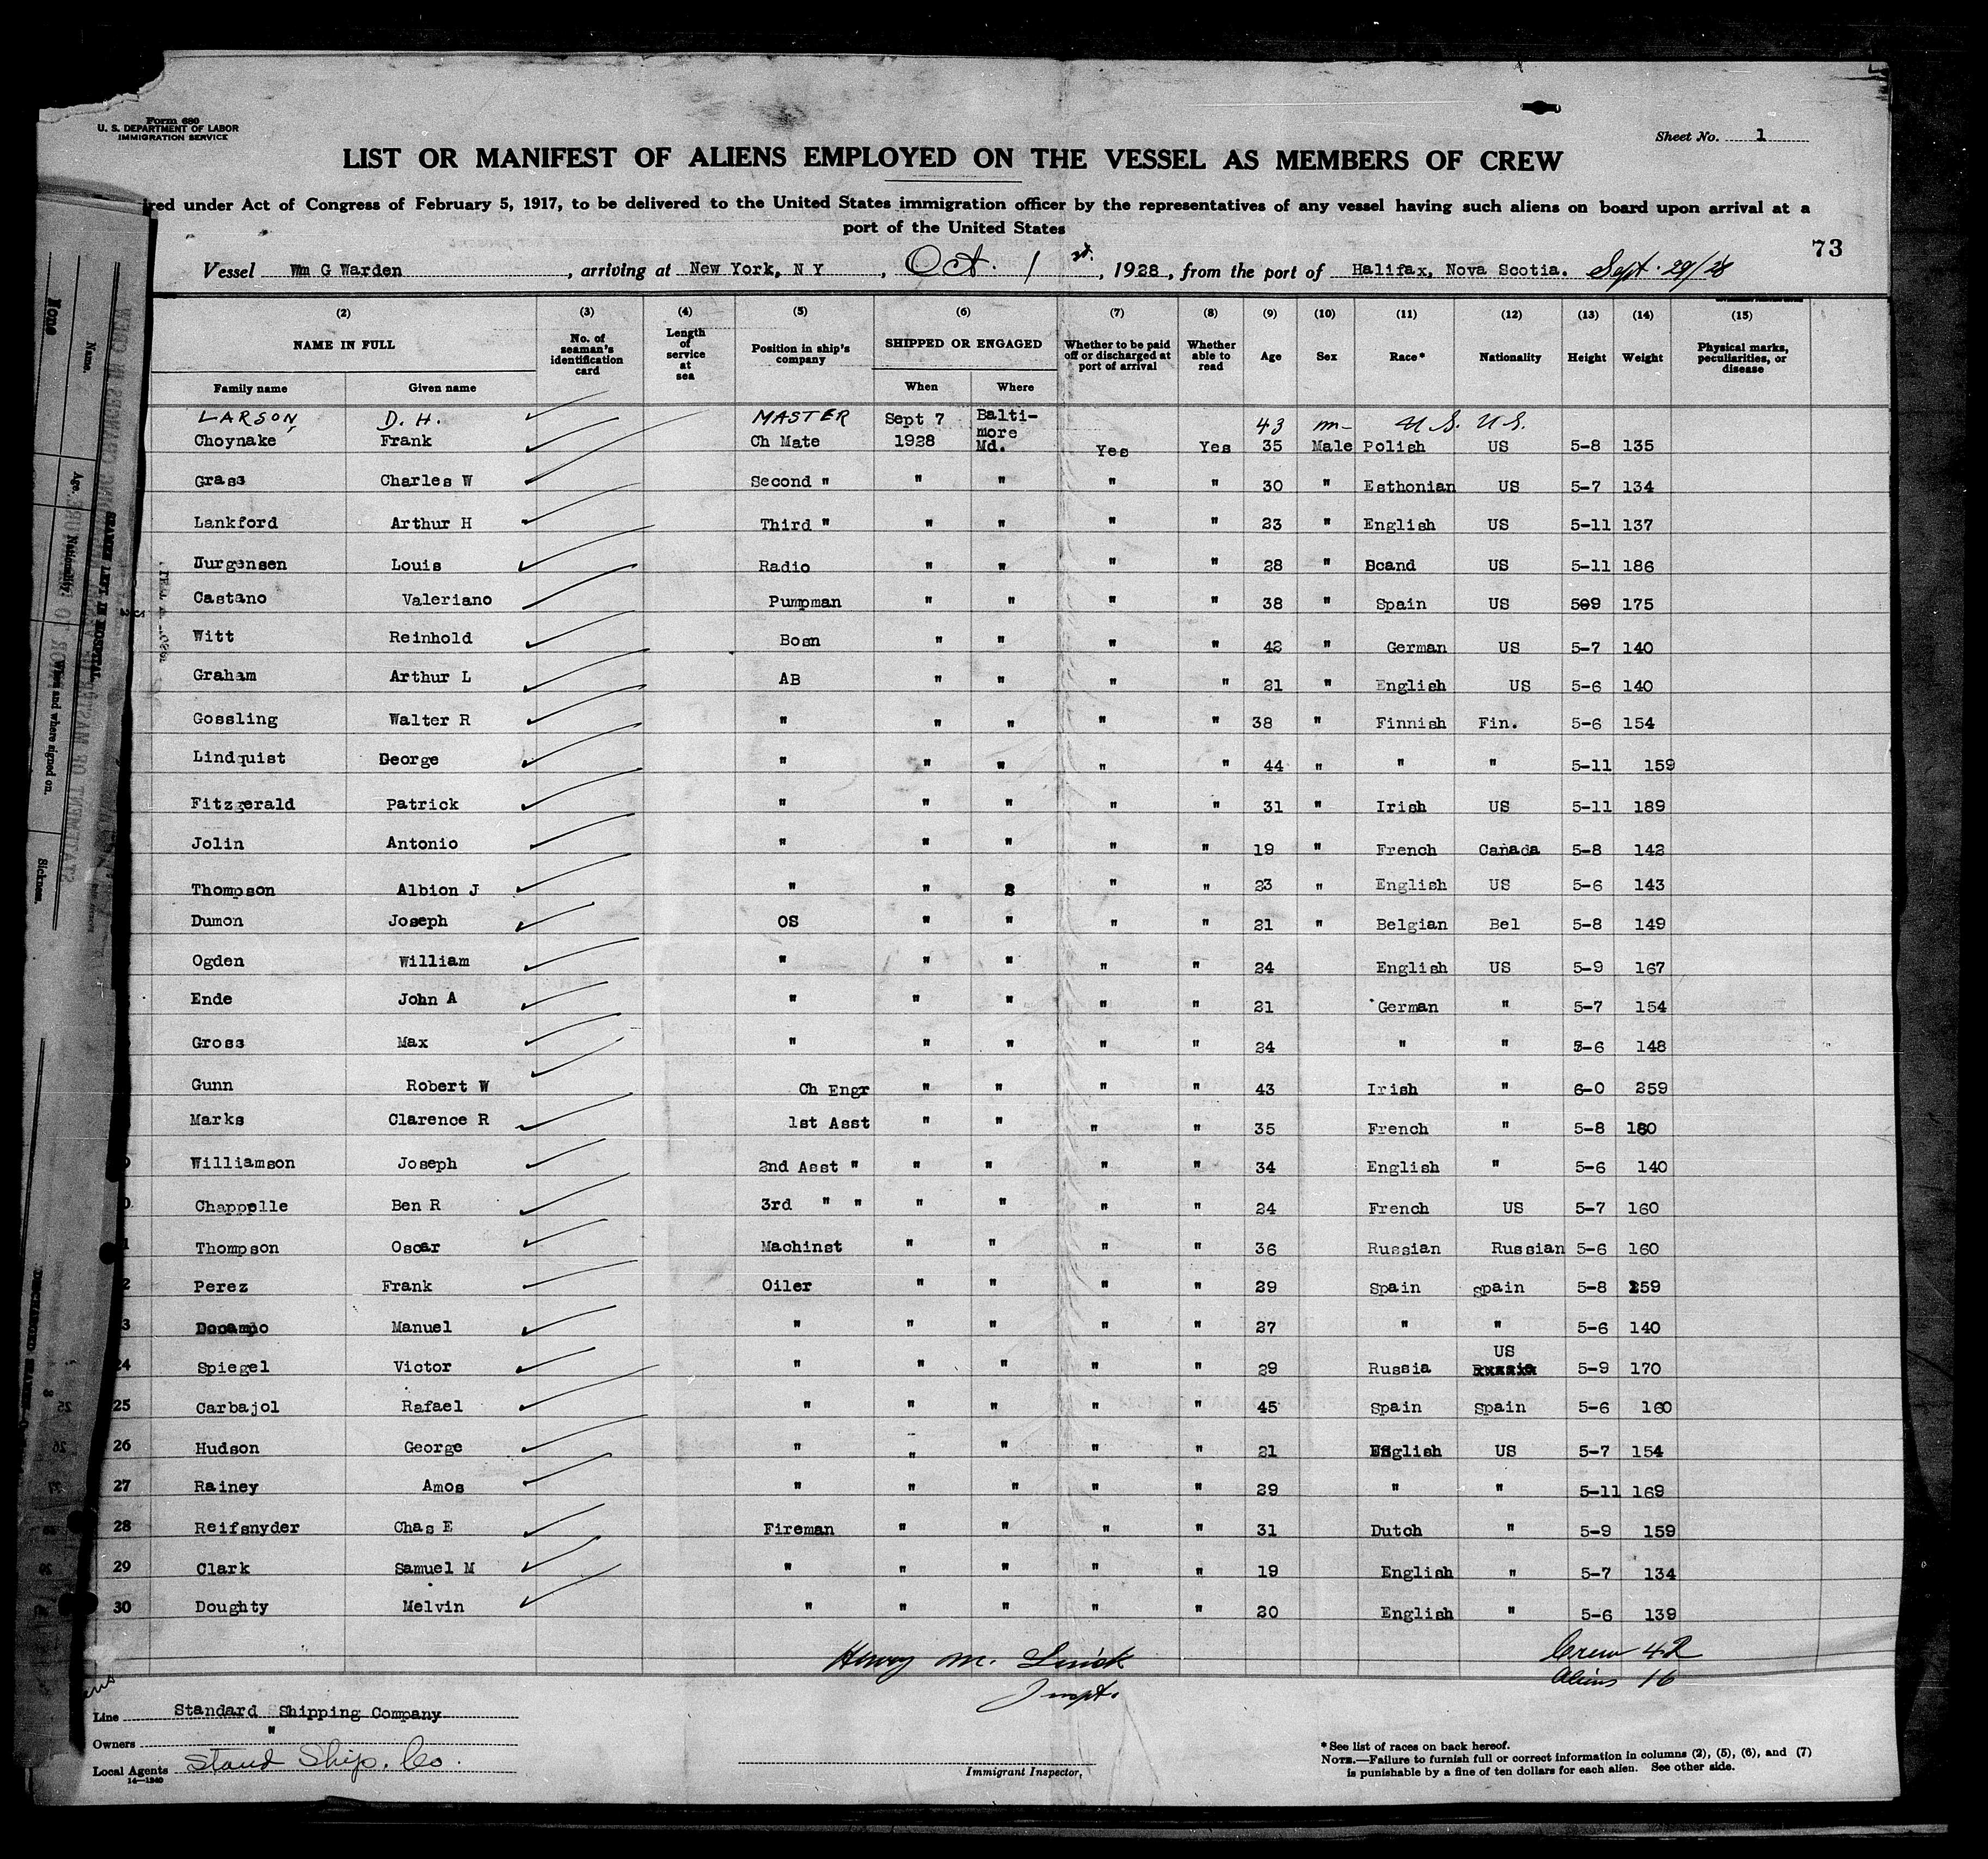 Form 680
U. S. DEPARTMENT OF LABOR
IMMIGRATION SERVICE
Sheet No. 1
LIST OR MANIFEST OF ALIENS EMPLOYED ON THE VESSEL AS MEMBERS OF CREW
ired under Act of Congress of February 5, 1917, to be delivered to the United States immigration officer by the representatives of any vessel having such aliens on board upon arrival at a
port of the United States
73
Vessel Wm G Warden, arriving at New York, N Y, Oct. 1st, 1928, from the port of Halifax, Nova Scotia. Sept. 29/28
(2) (3) (4) (5) (6) (7) (8) (9) (10) (11) (12) (13) (14) (15)
NAME IN FULL No. of seaman's identification card Length of service at sea Position in ship's company SHIPPED OR ENGAGED Whether to be paid off or discharged at port of arrival Whether able to read Age Sex Race* Nationality Height Weight Physical marks, peculiarities, or disease
Family name Given name When Where
LARSON, D. H. MASTER Sept 7 Balti- 43 m- U.S. U.S.
Choynake Frank Ch Mate 1928 more Md. Yes Yes 35 Male Polish US 5-8 135
Grass Charles W Second " " " " " 30 " Esthonian US 5-7 134
Lankford Arthur H Third " " " " " 23 " English US 5-11 137
urgensen Louis Radio " " " " 28 " cand US 5-11 186
Castano Valeriano Pumpman " " " " 38 " Spain US 509 175
Witt Reinhold Bosn " " " " 42 " German US 5-7 140
Graham Arthur L AB " " " " 21 " English US 5-6 140
Gossling Walter R " " " " " 38 " Finnish Fin. 5-6 154
Lindquist George " " " " " 44 " " " 5-11 159
Fitzgerald Patrick " " " " " 31 " Irish US 5-11 189
Jolin Antonio " " " " " 19 " French Canada 5-8 142
Thompson Albion J " " " " 23 " English US 5-6 143
Dumon Joseph OS " " " " 21 " Belgian Bel 5-8 149
Ogden William " " " " " 24 English US 5-9 167
Ende John A " " " " " 21 German " 5-7 154
Gross Max " " " " " 24 " " 5-6 148
Gunn Robert W Ch Engr " " " " 43 Irish " 6-0 259
Marks Clarence R 1st Asst " " " " 35 French " 5-8 180
Williamson Joseph 2nd Asst " " " " " 34 English " 5-6 140
Chappelle Ben R 3rd " " " " " " 24 French US 5-7 160
Thompson Oscar Machinst " " " " 36 Russian Russian 5-6 160
2 Perez Frank Oiler " " " " 29 Spain spain 5-8 159
3 Manuel " " " " " 27 " " 5-6 140
US
24 Spiegel Victor " " " " " 29 Russia 5-9 170
25 Carbajol Rafael " " " " " 45 Spain Spain 5-6 160
26 Hudson George " " " " " 21 English US 5-7 154
27 Rainey Amos " " " " " 29 " " 5-11 169
28 Reifsnyder Chas E Fireman " " " " 31 Dutch " 5-9 159
29 Clark Samuel M " " " " " 19 English " 5-7 134
30 Doughty Melvin " " " " " 20 English " 5-6 139
Henry M. Crew 42
Inspt. Aliens 16
Line Standard Shipping Company
Owners "
Local Agents Stand Ship. Co.
14—1240
Immigrant Inspector,
* See list of races on back hereof.
NOTE.—Failure to furnish full or correct information in columns (2), (5), (6), and (7)
is punishable by a fine of ten dollars for each alien. See other side.
None
Name.
Age.
Nationality.
When and where signed on.
Sickness.
SEAMEN LEFT IN HOSPITAL